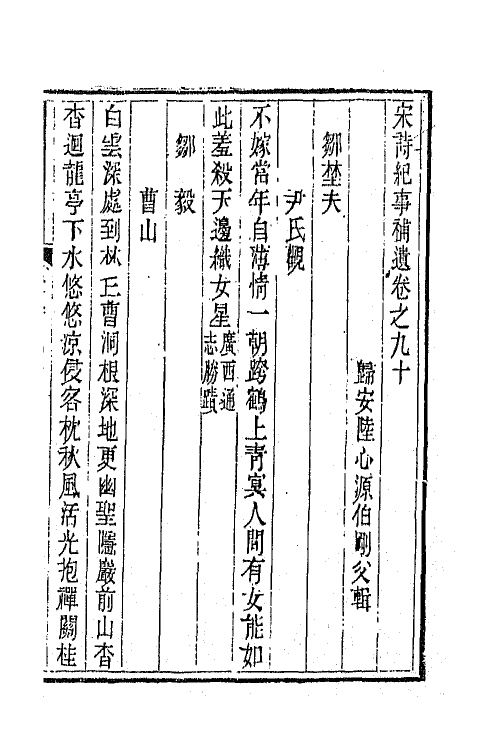 宋詩紀事補遺卷之九十
歸安陸心源伯剛父輯
鄒埜夫
尹氏觀
不嫁當年自薄情一朝跨鶴上青冥人間有女能如
此羞殺天邊織女星廣西通志勝蹟
鄒毅
曹山
白雲深處到林丘曹洞根深地更幽聖隱巖前山杳
杳迴龍亭下水悠悠涼侵客枕秋風活光抱禪關桂